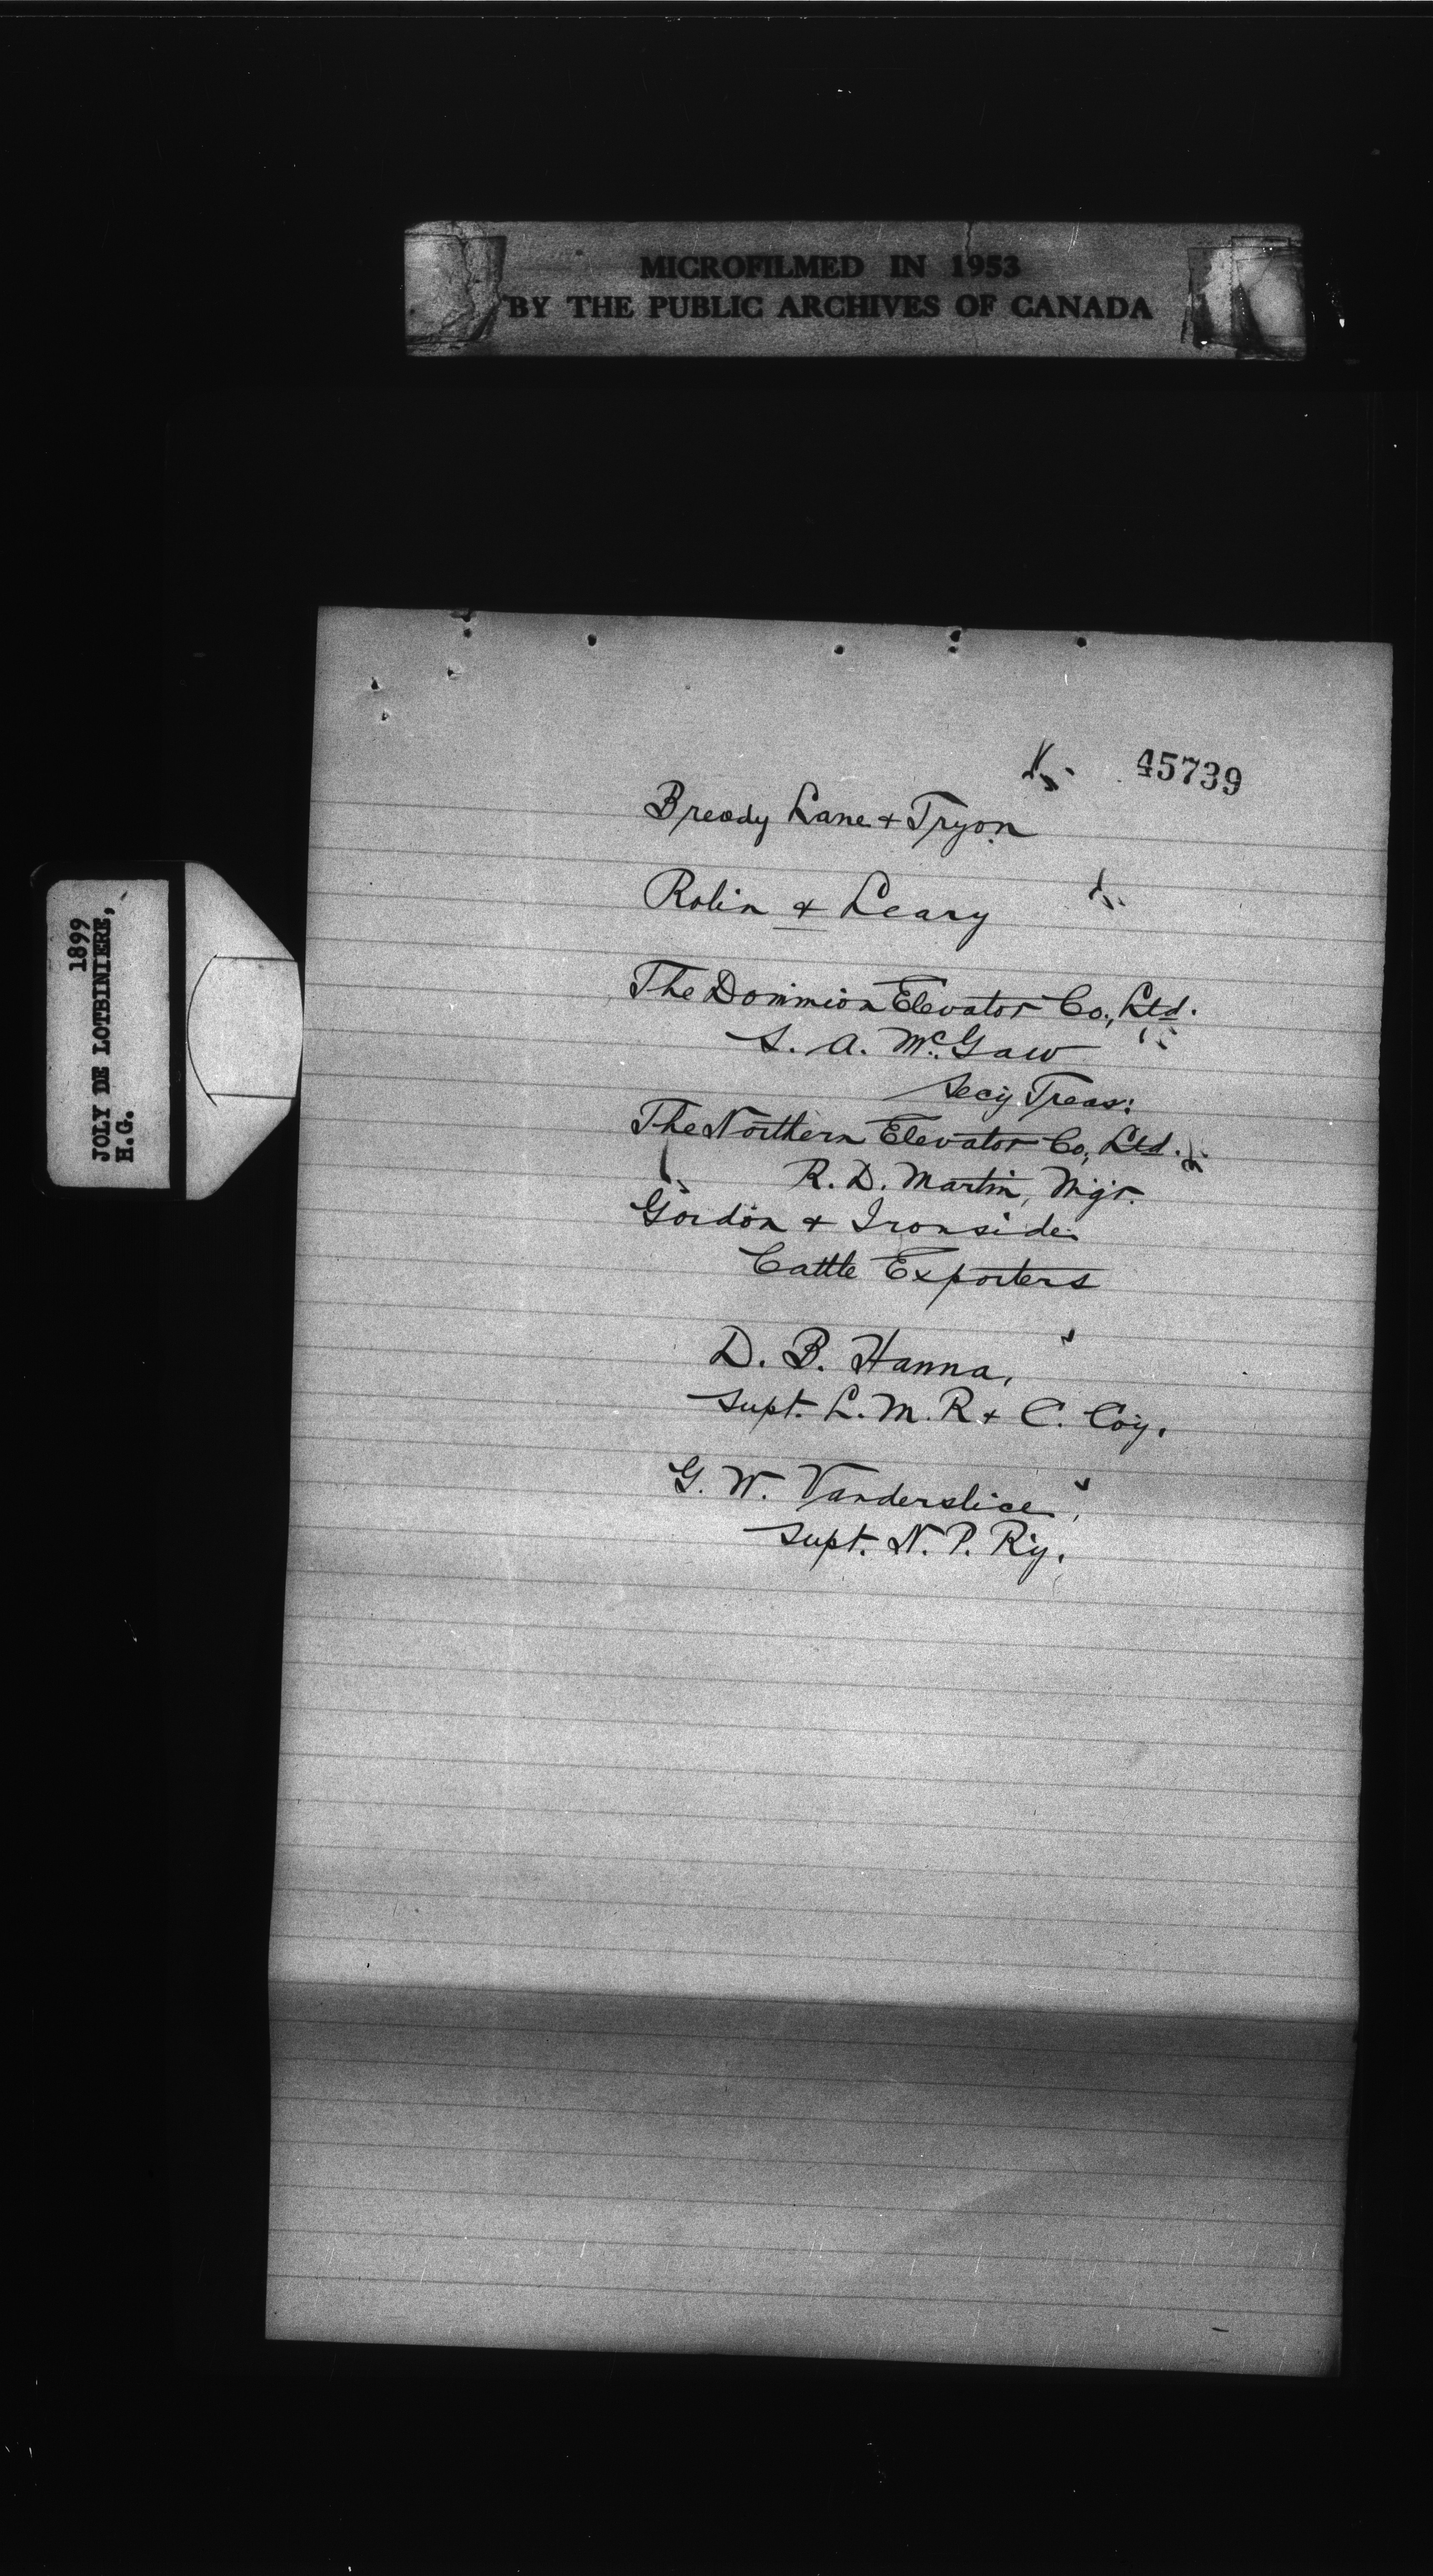 MICROFILMED IN 1953
BY THE PUBLIC ARCHIVES OF CANADA
1899
JOLY DE LOTBINIERE,
H.G.
45739
Bready Lane & Tryon
Rolin & Leary
The Dominion Elevator Co., Ltd.
S. A. McGaw
Secy. Treas:
The Northern Elevator Co, Ltd.
R. D. Martin, Mgr.
Gordon & Ironside
Cattle Exporters
D. B. Hanna,
Supt. L. M. R & C. Coy.
G. W. Vanderslice,
Supt. N. P. Ry.